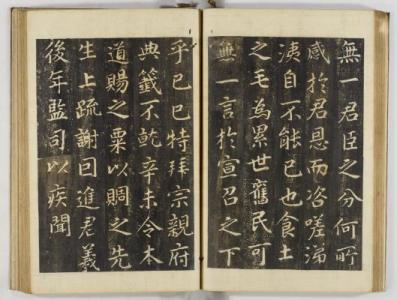 無一君臣之分何所
感於君恩而咨嗟涕
洟自不能已也食土
之毛為累世舊民可
無一言於宣召之下
乎己巳特拜宗親府
典籤不就辛未令本
道賜之粟以賙之先
生上疏謝曰進君義
後年監司以疾聞